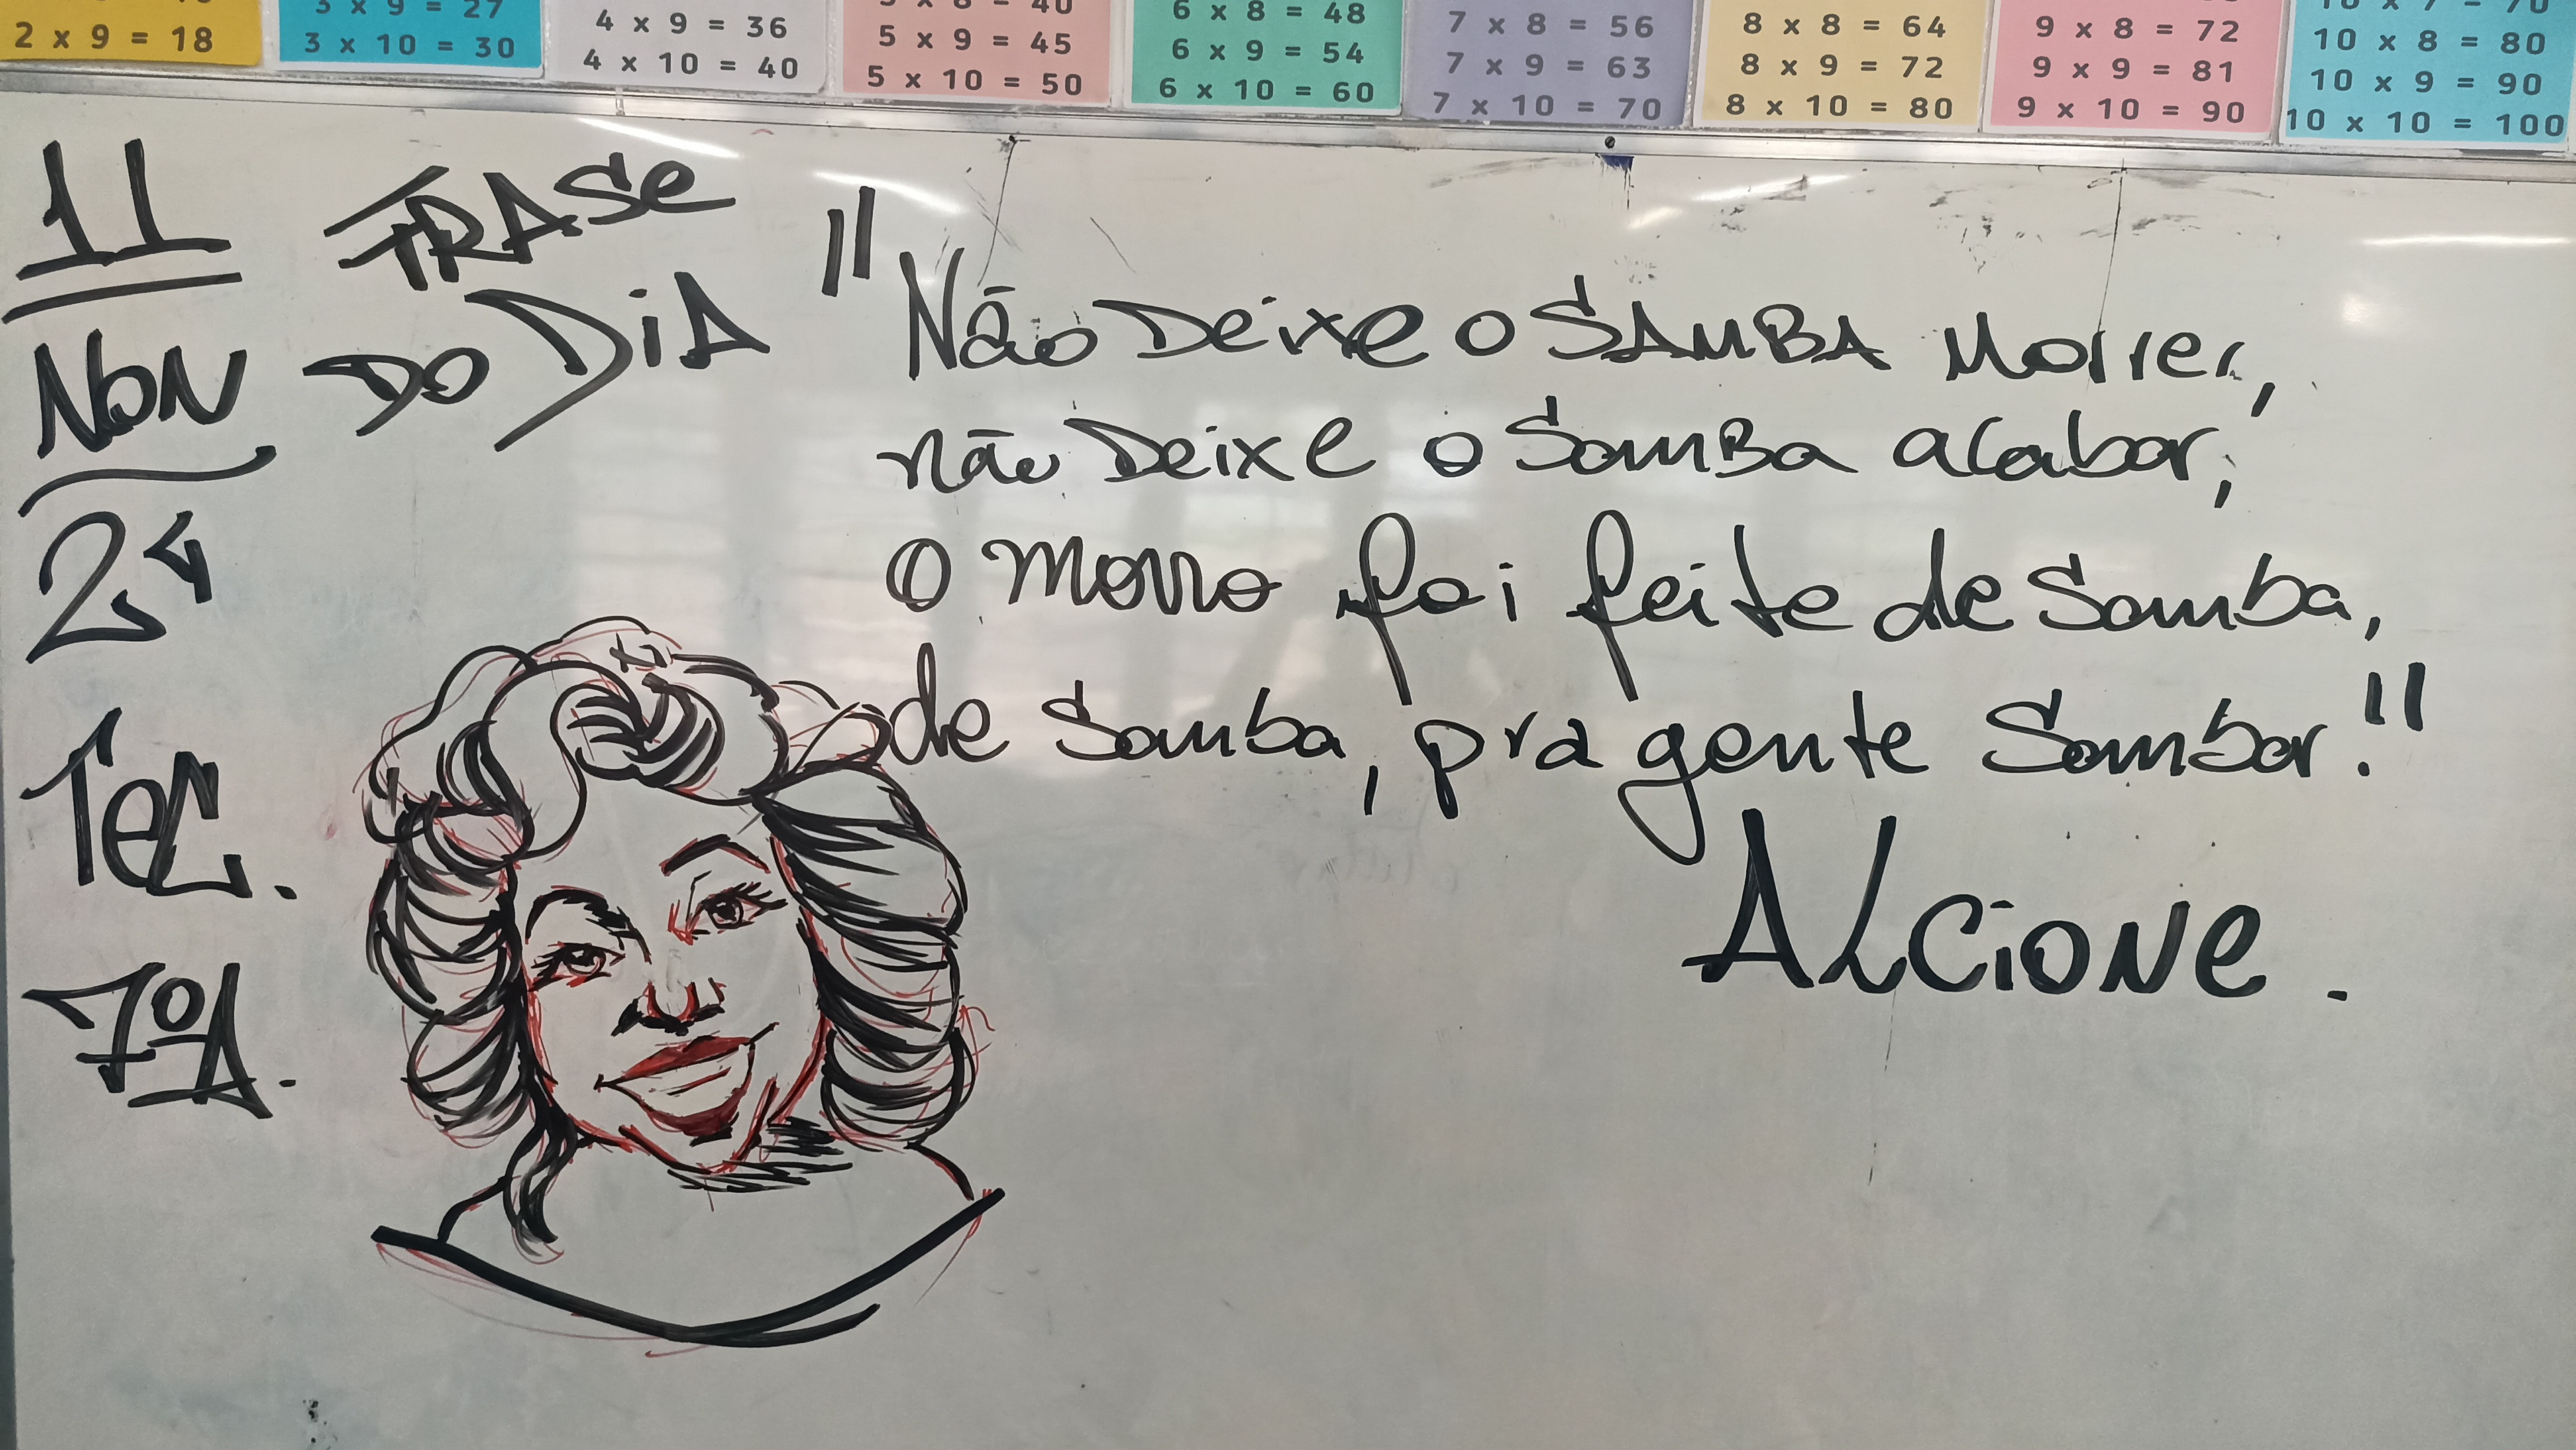 2 x 9 = 18
3 x 9 = 27
3 x 10 = 30
4 x 9 = 36
4 x 10 = 40
5 x 8 = 40
5 x 9 = 45
5 x 10 = 50
6 x 8 = 48
6 x 9 = 54
6 x 10 = 60
7 x 8 = 56
7 x 9 = 63
7 x 10 = 70
8 x 8 = 64
8 x 9 = 72
8 x 10 = 80
9 x 8 = 72
9 x 9 = 81
9 x 10 = 90
10 x 7 = 70
10 x 8 = 80
10 x 9 = 90
10 x 10 = 100
11
NoN
2ª
TeC.
7ºA.
FRASe
DO DiA
"Não Deixe o SAMBA Morrer,
não Deixe o SamBa acabar,
O morro foi feito de Samba,
de Samba, pra gente Sambar!"
ALCioNe.